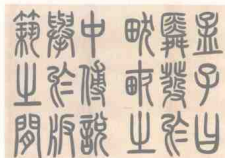 孟子曰
舜發於
畎畝之
中傅說
舉於版
築之間